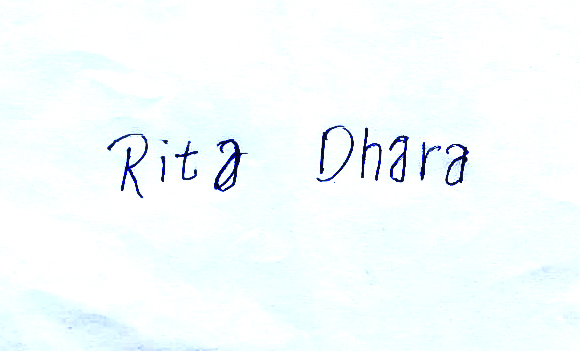 Rita Dhara